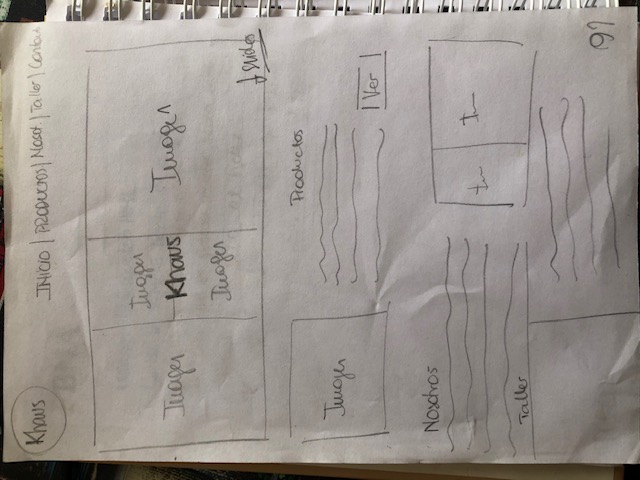 Khaus
INICIO | PRODUCTOS | Nosot. | Taller | Contact
Imagen
Imagen
Khaus
Imagen
Imagen
↓ slides
Productos
Imagen
| Ver |
Nosotros
Im
Im
Taller